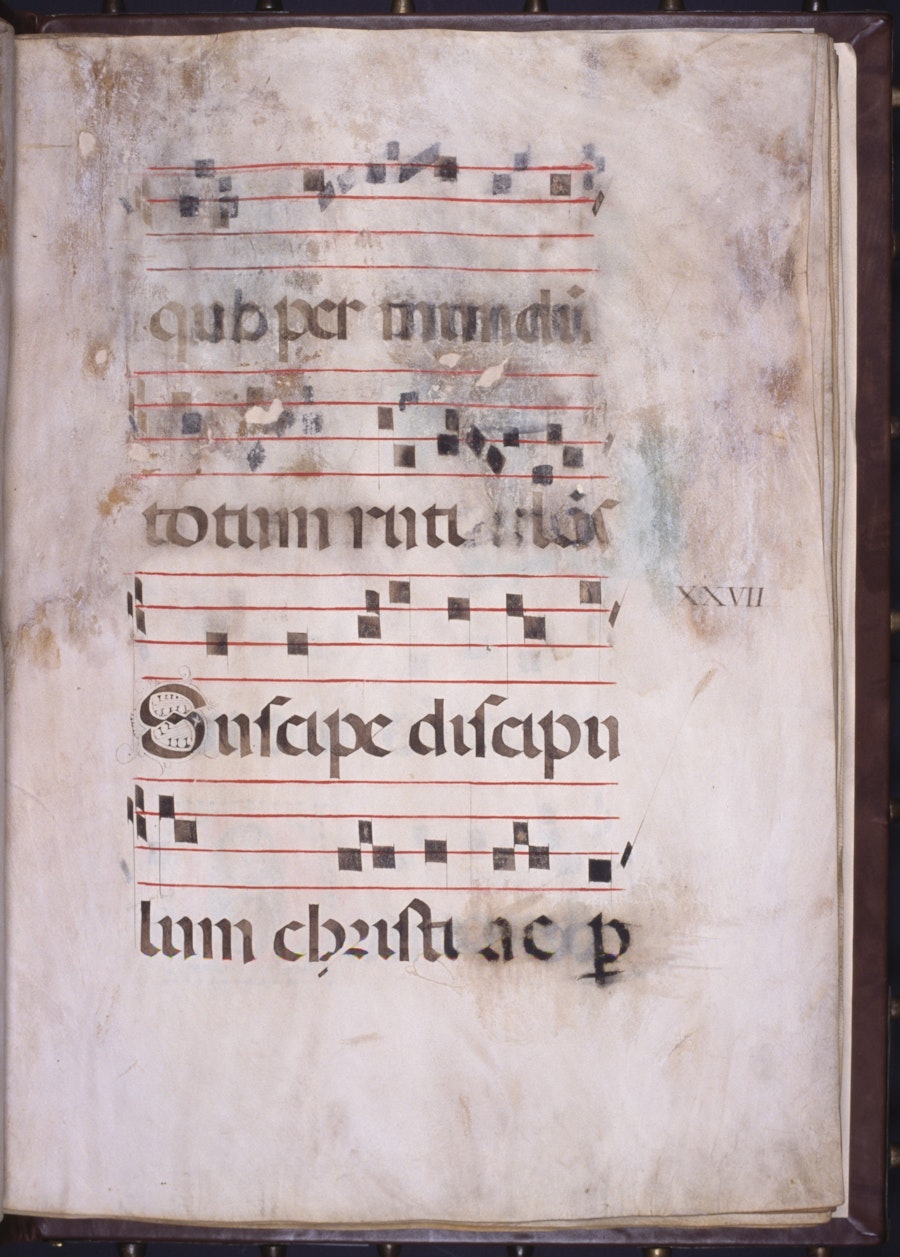 qub per mundū
totum ruti
XXVII
Suscipe discipu
lum christi ac p